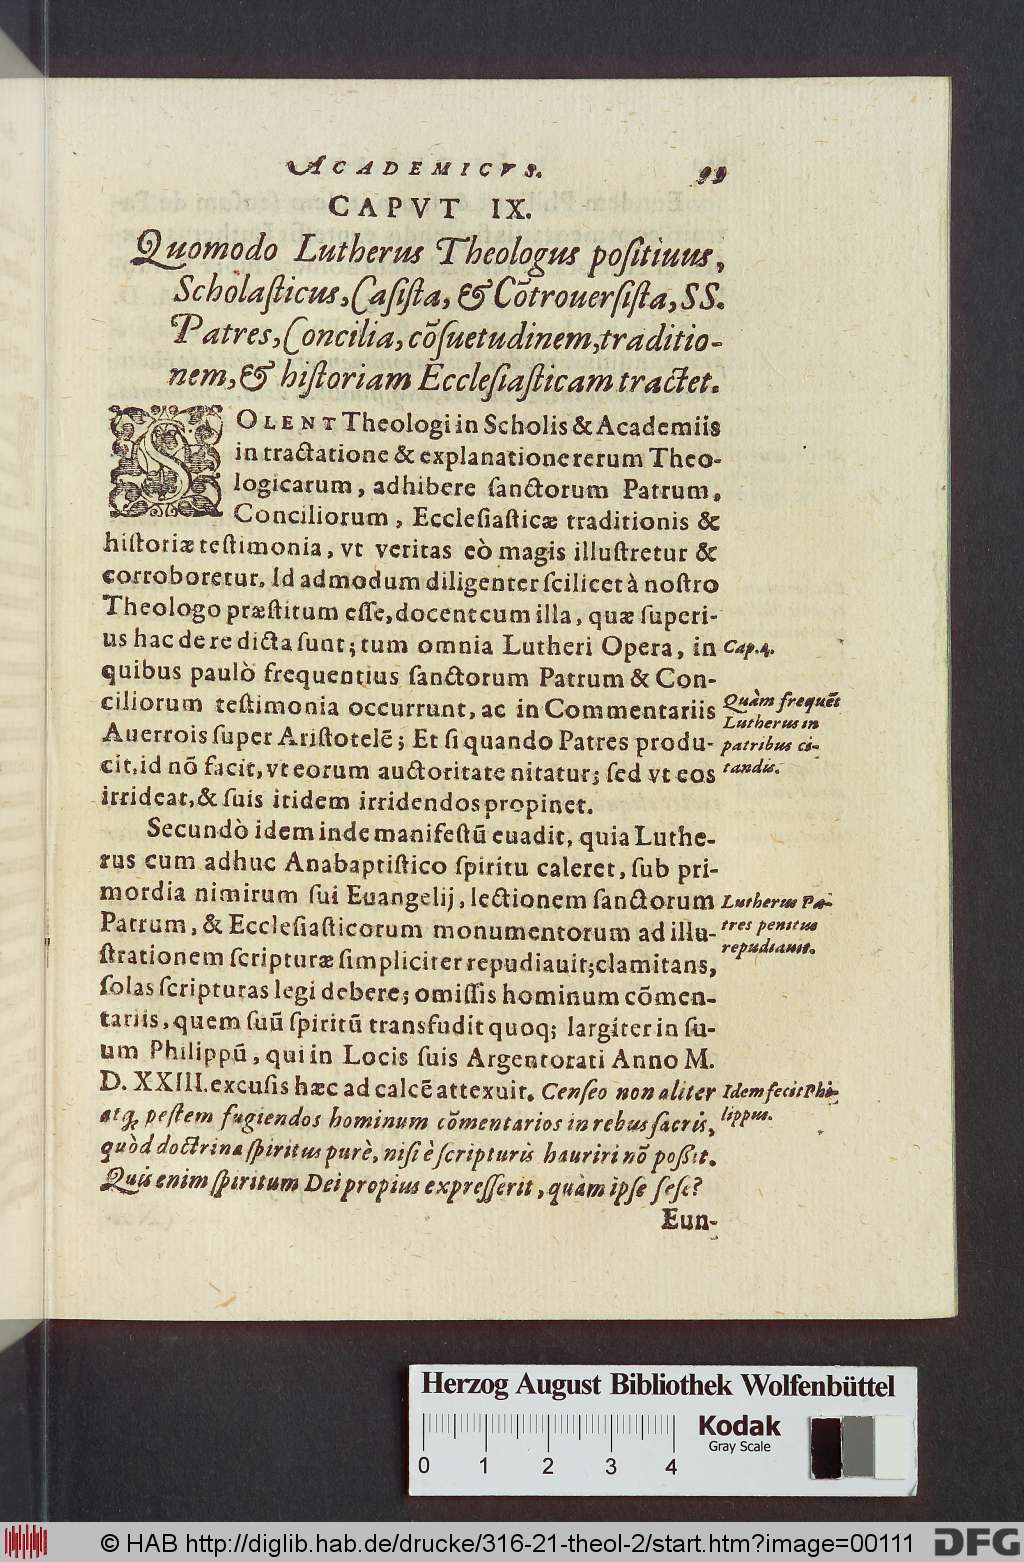 ACADEMICVS. 99
CAPVT IX.
Quomodo Lutherus Theologus poſitiuus,
Scholaſticus, Caſiſta, & Cõtrouerſiſta, SS.
Patres, Concilia, cõſuetudinem, traditio-
nem, & hiſtoriam Eccleſiaſticam tractet.
SOLENT Theologi in Scholis & Academiis
in tractatione & explanatione rerum Theo-
logicarum, adhibere ſanctorum Patrum,
Conciliorum, Eccleſiaſticæ traditionis &
hiſtoriæ teſtimonia, vt veritas eò magis illuſtretur &
corroboretur. Id admodum diligenter ſcilicet à noſtro
Theologo præſtitum eſſe, docent cum illa, quæ ſuperi-
us hac de re dicta ſunt; tum omnia Lutheri Opera, in
Cap. 4.
quibus paulò frequentius ſanctorum Patrum & Con-
ciliorum teſtimonia occurrunt, ac in Commentariis
Auerrois ſuper Ariſtotelē; Et ſi quando Patres produ-
cit, id nõ facit, vt eorum auctoritate nitatur; ſed vt eos
irrideat, & ſuis itidem irridendos propinet.
Quàm frequẽt
Lutherus in
patribus ci-
tandis.
Secundò idem inde manifeſtũ euadit, quia Luthe-
rus cum adhuc Anabaptiſtico ſpiritu caleret, ſub pri-
mordia nimirum ſui Euangelij, lectionem ſanctorum
Patrum, & Eccleſiaſticorum monumentorum ad illu-
ſtrationem ſcripturæ ſimpliciter repudiauit; clamitans,
Lutherus Pa-
tres penitus
repudiauit.
ſolas ſcripturas legi debere; omiſſis hominum cõmen-
tariis, quem ſuũ ſpiritũ transfudit quoq; largiter in ſu-
um Philippũ, qui in Locis ſuis Argentorati Anno M.
D. XXIII. excuſis hæc ad calcẽ attexuit. Cenſeo non aliter
atq; peſtem fugiendos hominum cõmentarios in rebus ſacris,
Idem fecit Phi-
lippus.
quòd doctrina ſpiritus purè, niſi è ſcripturis hauriri nõ poßit.
Quis enim ſpiritum Dei propius expreſſerit, quàm ipſe ſeſe?
Eun-
Herzog August Bibliothek Wolfenbüttel
Kodak
Gray Scale
0 1 2 3 4
© HAB http://diglib.hab.de/drucke/316-21-theol-2/start.htm?image=00111
DFG